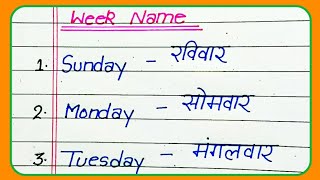 Week Name
1. Sunday - रविवार
2. Monday - सोमवार
3. Tuesday - मंगलवार